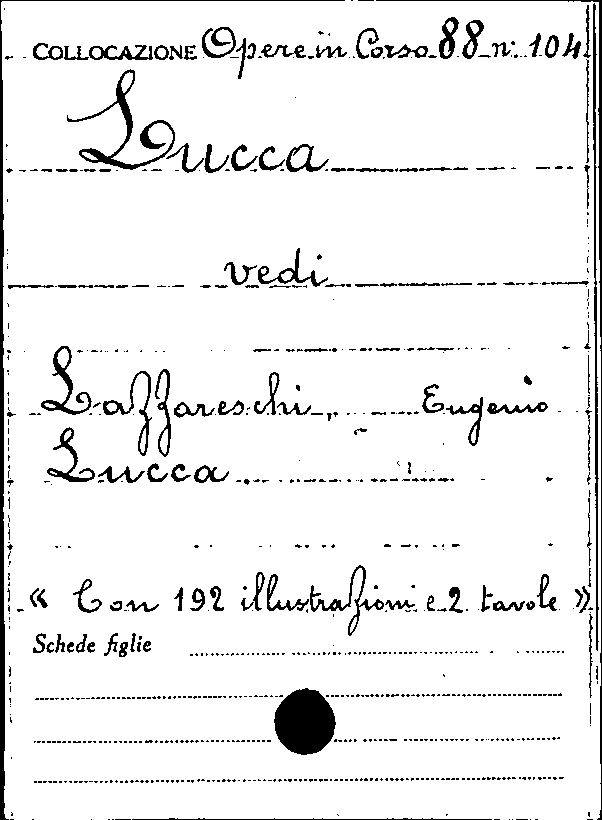 COLLOCAZIONE Opere in Corso 88 n. 104
Lucca
vedi
Lazzareschi, Eugenio
Lucca
« Con 192 illustrazioni e 2 tavole »
Schede figlie